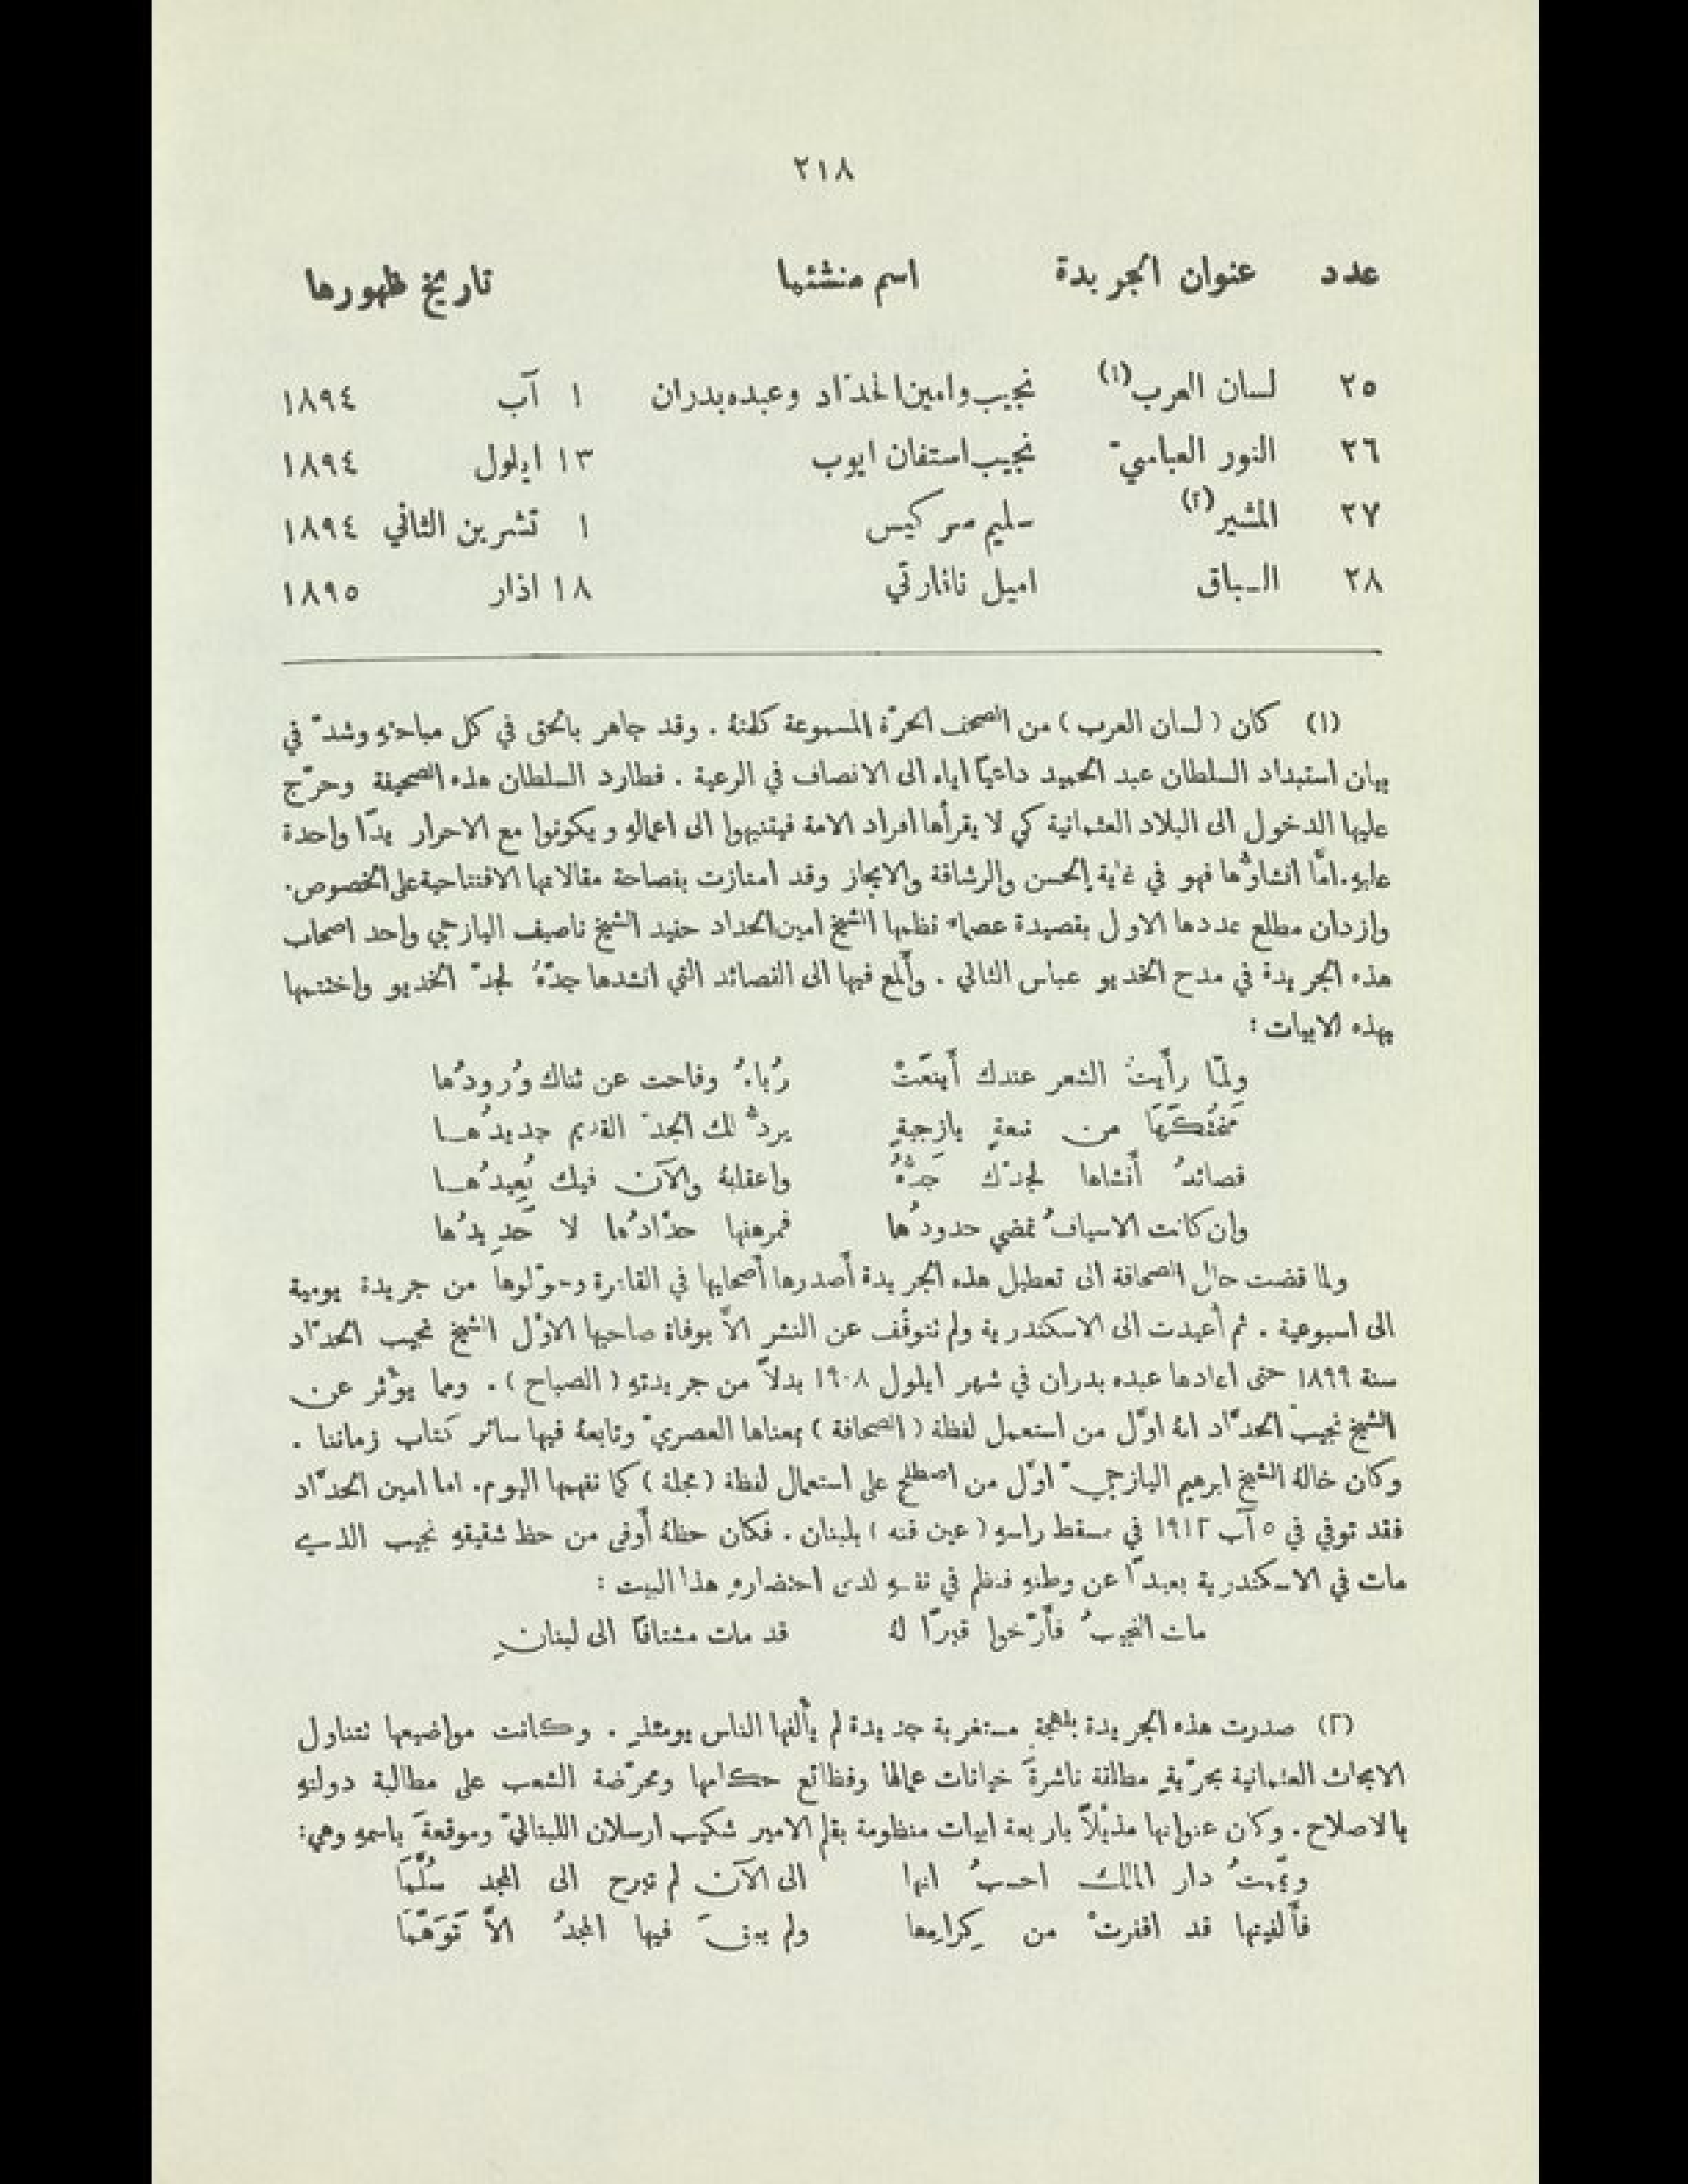 ٢١٨
عدد عنوان الجريدة اسم منشئها تاريخ ظهورها
٢٥ لسان العرب (١) نجيب وامين الحدّاد وعبده بدران ١ آب ١٨٩٤
٢٦ النور العباسيّ نجيب استفان ايوب ١٣ ايلول ١٨٩٤
٢٧ المشير (٢) سليم سركيس ١ تشرين الثاني ١٨٩٤
٢٨ السباق اميل نانارتي ١٨ اذار ١٨٩٥
(١) كان (لسان العرب) من الصحف الحرّة المسموعة كلمتهُ . وقد جاهر بالحق في كل مباحثهِ وشدّد في
بيان استبداد السلطان عبد الحميد داعيًا اياه الى الانصاف في الرعية . فطارد السلطان هذه الصحيفة وحرّج
عليها الدخول الى البلاد العثمانية كي لا يقرأها افراد الامة فيتنبهوا الى اعمالهِ ويكونوا مع الاحرار يدًا واحدة
عليهِ . امَّا انشاؤُها فهو في غاية الحسن والرشاقة والايجاز وقد امتازت بفصاحة مقالاتها الافتتاحية على الخصوص .
وازدان مطلع عددها الاول بقصيدة عصماء نظمها الشيخ امين الحداد حفيد الشيخ ناصيف اليازجي واحد اصحاب
هذه الجريدة في مدح الخديو عباس الثاني . وأَلمع فيها الى القصائد التي انشدها جدّهُ لجدّ الخديو واختتمها
بهذه الابيات :
ولمّا رأَيتُ الشعر عندك أَينعَتْ رُباهُ وفاحت عن ثناك وُرودُها
مَنحتُكَهَا من نبعةٍ يازجيةٍ يردُّ لك الجدّ القديم جديدُها
قصائدُ أَنشاها لجدّك جَدُّهُ واعقابهُ والآن فيك يُعِيدُها
وان كانت الاسيافُ تمضي حدودُها فمرهفها حدّادُها لا حَديدُها
ولما قضت حال الصحافة الى تعطيل هذه الجريدة أَصدرها أَصحابها في القاهرة وحوّلوها من جريدة يومية
الى اسبوعية . ثم أُعيدت الى الاسكندرية ولم تتوقَّف عن النشر الاَّ بوفاة صاحبها الاوّل الشيخ نجيب الحدّاد
سنة ١٨٩٩ حتى اعادها عبده بدران في شهر ايلول ١٩٠٨ بدلاً من جريدتهِ (الصباح) . ومما يؤثر عن
الشيخ نجيب الحدّاد انهُ اوّل من استعمل لفظة (الصحافة) بمعناها العصريّ وتابعهُ فيها سائر كتاب زماننا .
وكان خالهُ الشيخ ابرهيم اليازجيّ اوّل من اصطلح على استعمال لفظة (مجلة) كما نفهمها اليوم . اما امين الحدّاد
فقد توفي في ٥ آب ١٩١٢ في مسقط راسهِ (عين قنه) بلبنان . فكان حظهُ أَوفى من حظ شقيقهِ نجيب الذي
مات في الاسكندرية بعيدًا عن وطنهِ فنظم في نفسهِ لدى احتضارهِ هذا البيت :
مات النجيبُ فأَرّخوا قبرًا لهُ قد مات مشتاقًا الى لبنانِ
(٢) صدرت هذه الجريدة بلهجةٍ مستغربة جديدة لم يأْلفها الناس يومئذٍ . وكانت مواضيعها تتناول
الابحاث العثمانية بحرّيةٍ مطلقة ناشرةً خيانات عمالها وفظائع حكامها ومحرّضة الشعب على مطالبة دولتهِ
بالاصلاح . وكان عنوانها مذيَّلاً باربعة ابيات منظومة بقلم الامير شكيب ارسلان اللبنانيّ وموقعةً باسمهِ وهي :
ويمّمتُ دار الملك احسبُ انها الى الآن لم تبرح الى المجد سُلَّمَا
فأَلفيتها قد اقفرتْ من كِرامِها ولم يبقَ فيها المجدُ الاَّ تَوَهُّمَا